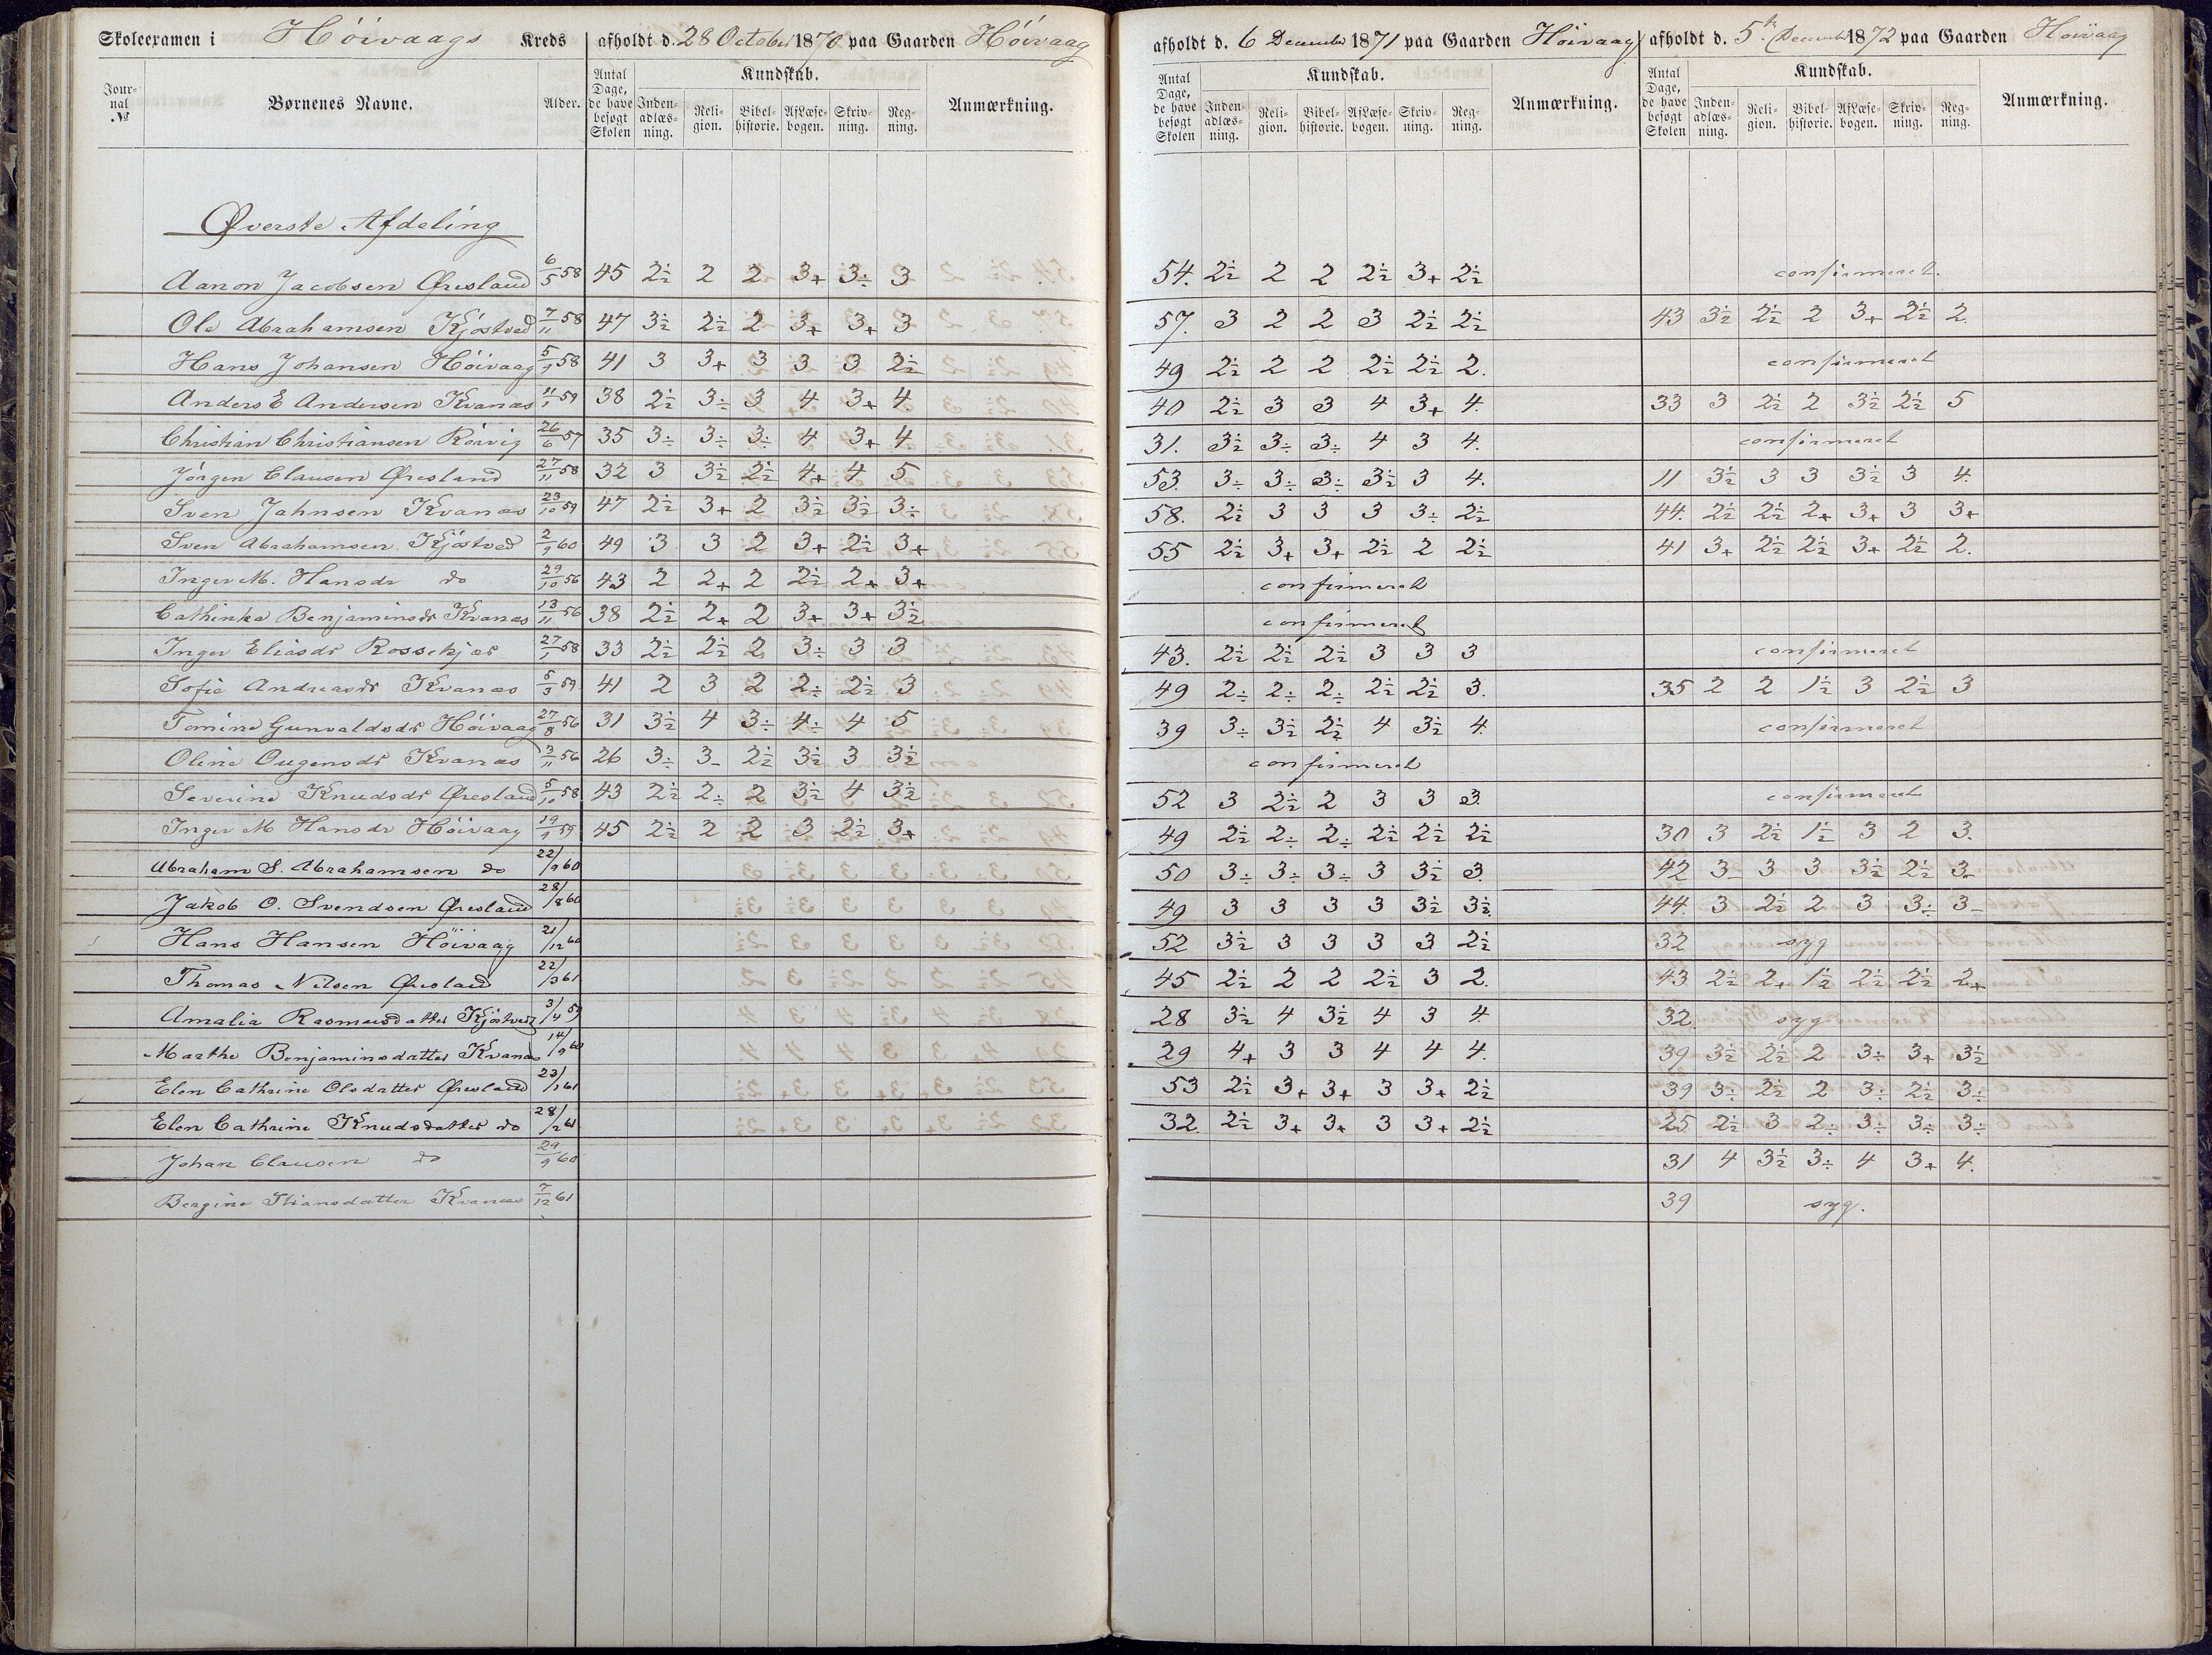 Skoleexamen i Höivaags Kreds afholdt d. 28 October 1870 paa Gaarden Höivaag afholdt d. 6 December 1871 paa Gaarden Höivaag afholdt d. 5te December 1872 paa Gaarden Höivaag
Jour-nal № Børnenes Navne. Alder. Antal Dage, de have besøgt Skolen Kundskab. Inden-adlæs-ning. Reli-gion. Bibel-historie. AfLæse-bogen. Skriv-ning. Reg-ning. Anmærkning. Antal Dage, de have besøgt Skolen Kundskab. Inden-adlæs-ning. Reli-gion. Bibel-historie. AfLæse-bogen. Skriv-ning. Reg-ning. Anmærkning. Antal Dage, de have besøgt Skolen Kundskab. Inden-adlæs-ning. Reli-gion. Bibel-historie. AfLæse-bogen. Skriv-ning. Reg-ning. Anmærkning.
Øverste Afdeling
Aanon Jacobsen Øresland 6/5 58 45 2½ 2 2 3+ 3÷ 3 54. 2½ 2 2 2½ 3+ 2½ confirmeret.
Ole Abrahamsen Kjöstved 7/11 58 47 3½ 2½ 2 3+ 3+ 3 57. 3 2 2 3 2½ 2½ 43 3½ 2½ 2 3+ 2½ 2.
Hans Johansen Höivaag 5/9 58 41 3 3+ 3 3 3 2½ 49 2½ 2 2 2½ 2½ 2. confirmeret
Anders E Andersen Kvanæs 11/1 59 38 2½ 3÷ 3 4 3+ 4. 40 2½ 3 3 4 3+ 4. 33 3 2½ 2 3½ 2½ 5
Christian Christiansen Rörvig 26/6 57 35 3÷ 3÷ 3÷ 4 3+ 4. 31. 3½ 3÷ 3÷ 4 3 4. confirmeret
Jörgen Clausen Øresland 27/11 58 32 3 3½ 2½ 4+ 4 5 53. 3÷ 3÷ 3÷ 3½ 3 4. 11 3½ 3 3 3½ 3 4.
Sven Jahnsen Kvanæs 23/10 59 47 2½ 3+ 2 3½ 3½ 3÷ 58. 2½ 3 3 3 3÷ 2½ 44. 2½ 2½ 2+ 3+ 3 3+
Sven Abrahamsen Kjöstved 2/9 60 49 3 3 2 3+ 2½ 3+ 55 2½ 3+ 3+ 2½ 2 2½ 41 3+ 2½ 2½ 3+ 2½ 2.
Inger M. Hansdr do 29/10 56 43 2 2+ 2 2½ 2+ 3+ confirmeret
Cathinka Benjaminsdr Kvanæs 13/11 56 38 2½ 2+ 2 3+ 3+ 3½ confirmeret
Inger Eliasdr Rossekjær 27/1 58 33 2½ 2½ 2 3÷ 3 3 43. 2½ 2½ 2½ 3 3 3 confirmeret
Sofie Andreasdr Kvanæs 5/3 59 41 2 3 2 2÷ 2½ 3 49 2÷ 2÷ 2÷ 2½ 2½ 3. 35 2 2 1½ 3 2½ 3
Tomine Gunvaldsdr Höivaag 27/8 56 31 3½ 4 3÷ 4÷ 4 5 39 3÷ 3½ 2½ 4 3½ 4. confirmeret
Oline Ougensdr Kvanæs 3/11 56 26 3÷ 3- 2½ 3½ 3 3½ confirmeret
Severine Knudsdr Øresland 5/10 58 43 2½ 2÷ 2 3½ 4 3½ 52 3 2½ 2 3 3 3. confirmeret
Inger M Hansdr Höivaag 19/9 59 45 2½ 2 2 3 2½ 3+ 49 2½ 2÷ 2÷ 2½ 2½ 2½ 30 3 2½ 1½ 3 2 3.
Abraham S. Abrahamsen do 22/9 60 50 3÷ 3÷ 3÷ 3 3½ 3. 42 3- 3 3 3½ 2½ 3-
Jakob O. Svendsen Øresland 28/8 60 49 3 3 3 3 3½ 3½ 44. 3 2½ 2 3 3÷ 3-
Hans Hansen Höivaag 21/12 60 52 3½ 3 3 3 3 2½ 32 syg
Thomas Nilsen Øresland 22/3 61 45 2½ 2 2 2½ 3 2. 43 2½ 2+ 1½ 2½ 2½ 2+
Amalia Rasmusdatter Kjöstved 3/4 59 28 3½ 4 3½ 4 3 4. 32. syg
Marthe Benjaminsdatter Kvanæs 14/9 60 29 4+ 3 3 4 4 4. 39 3½ 2½ 2 3÷ 3+ 3½
Elen Cathrine Olsdatter Øresland 23/3 61 53 2½ 3+ 3+ 3 3+ 2½ 39 3÷ 2½ 2 3÷ 2½ 3÷
Elen Cathrine Knudsdatter do 28/2 61 32. 2½ 3+ 3+ 3 3+ 2½ 25 2½ 3 2÷ 3÷ 3÷ 3÷
Johan Clausen do 29/9 60 31 4 3½ 3÷ 4 3+ 4.
Bergine Stiansdatter Kvanæs 7/12 61 39 syg.